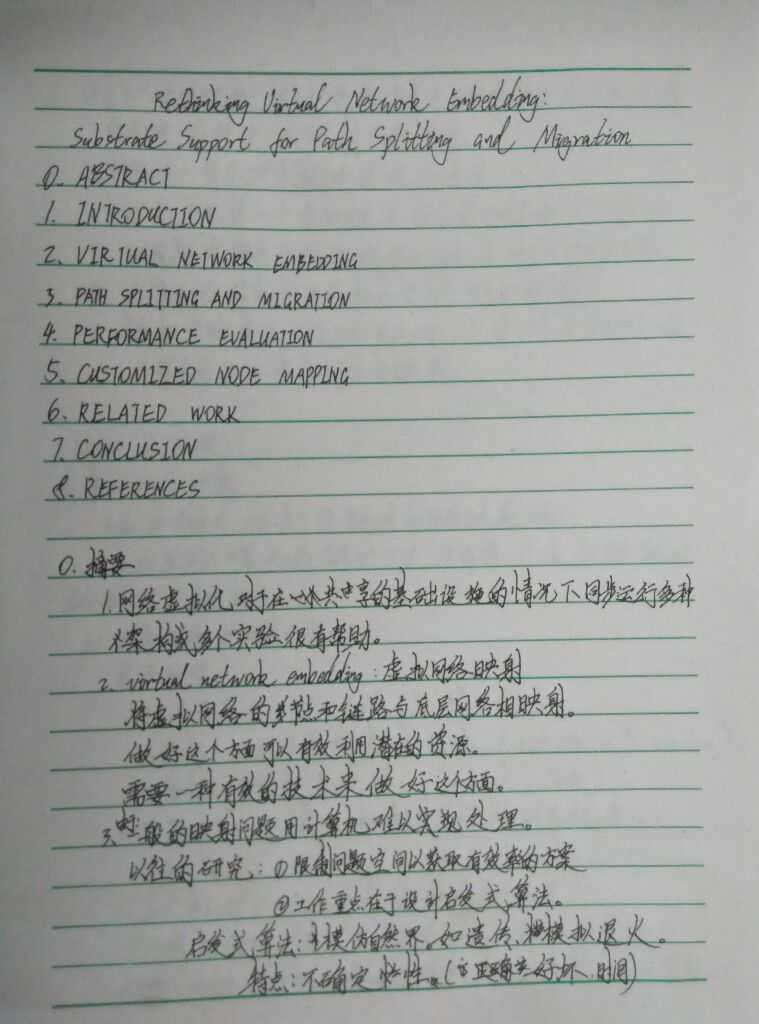 Rethinking Virtual Network Embedding:
Substrate Support for Path Splitting and Migration
0. ABSTRACT
1. INTRODUCTION
2. VIRTUAL NETWORK EMBEDDING
3. PATH SPLITTING AND MIGRATION
4. PERFORMANCE EVALUATION
5. CUSTOMIZED NODE MAPPING
6. RELATED WORK
7. CONCLUSION
8. REFERENCES
0. 摘要
1. 网络虚拟化对于在共享的基础设施的情况下同步运行多种
架构或多个实验很有帮助。
2. virtual network embedding: 虚拟网络映射
将虚拟网络的节点和链路与底层网络相映射。
做好这个方面可以有效利用潜在的资源。
需要一种有效的技术来做好这个方面。
3. 一般的映射问题用计算机难以实现处理。
以往的研究: ① 限制问题空间以获取有效率的方案
② 工作重点在于设计启发式算法。
启发式算法: 模仿自然界。如遗传、模拟退火。
特点: 不确定性。(正确 好坏、时间)